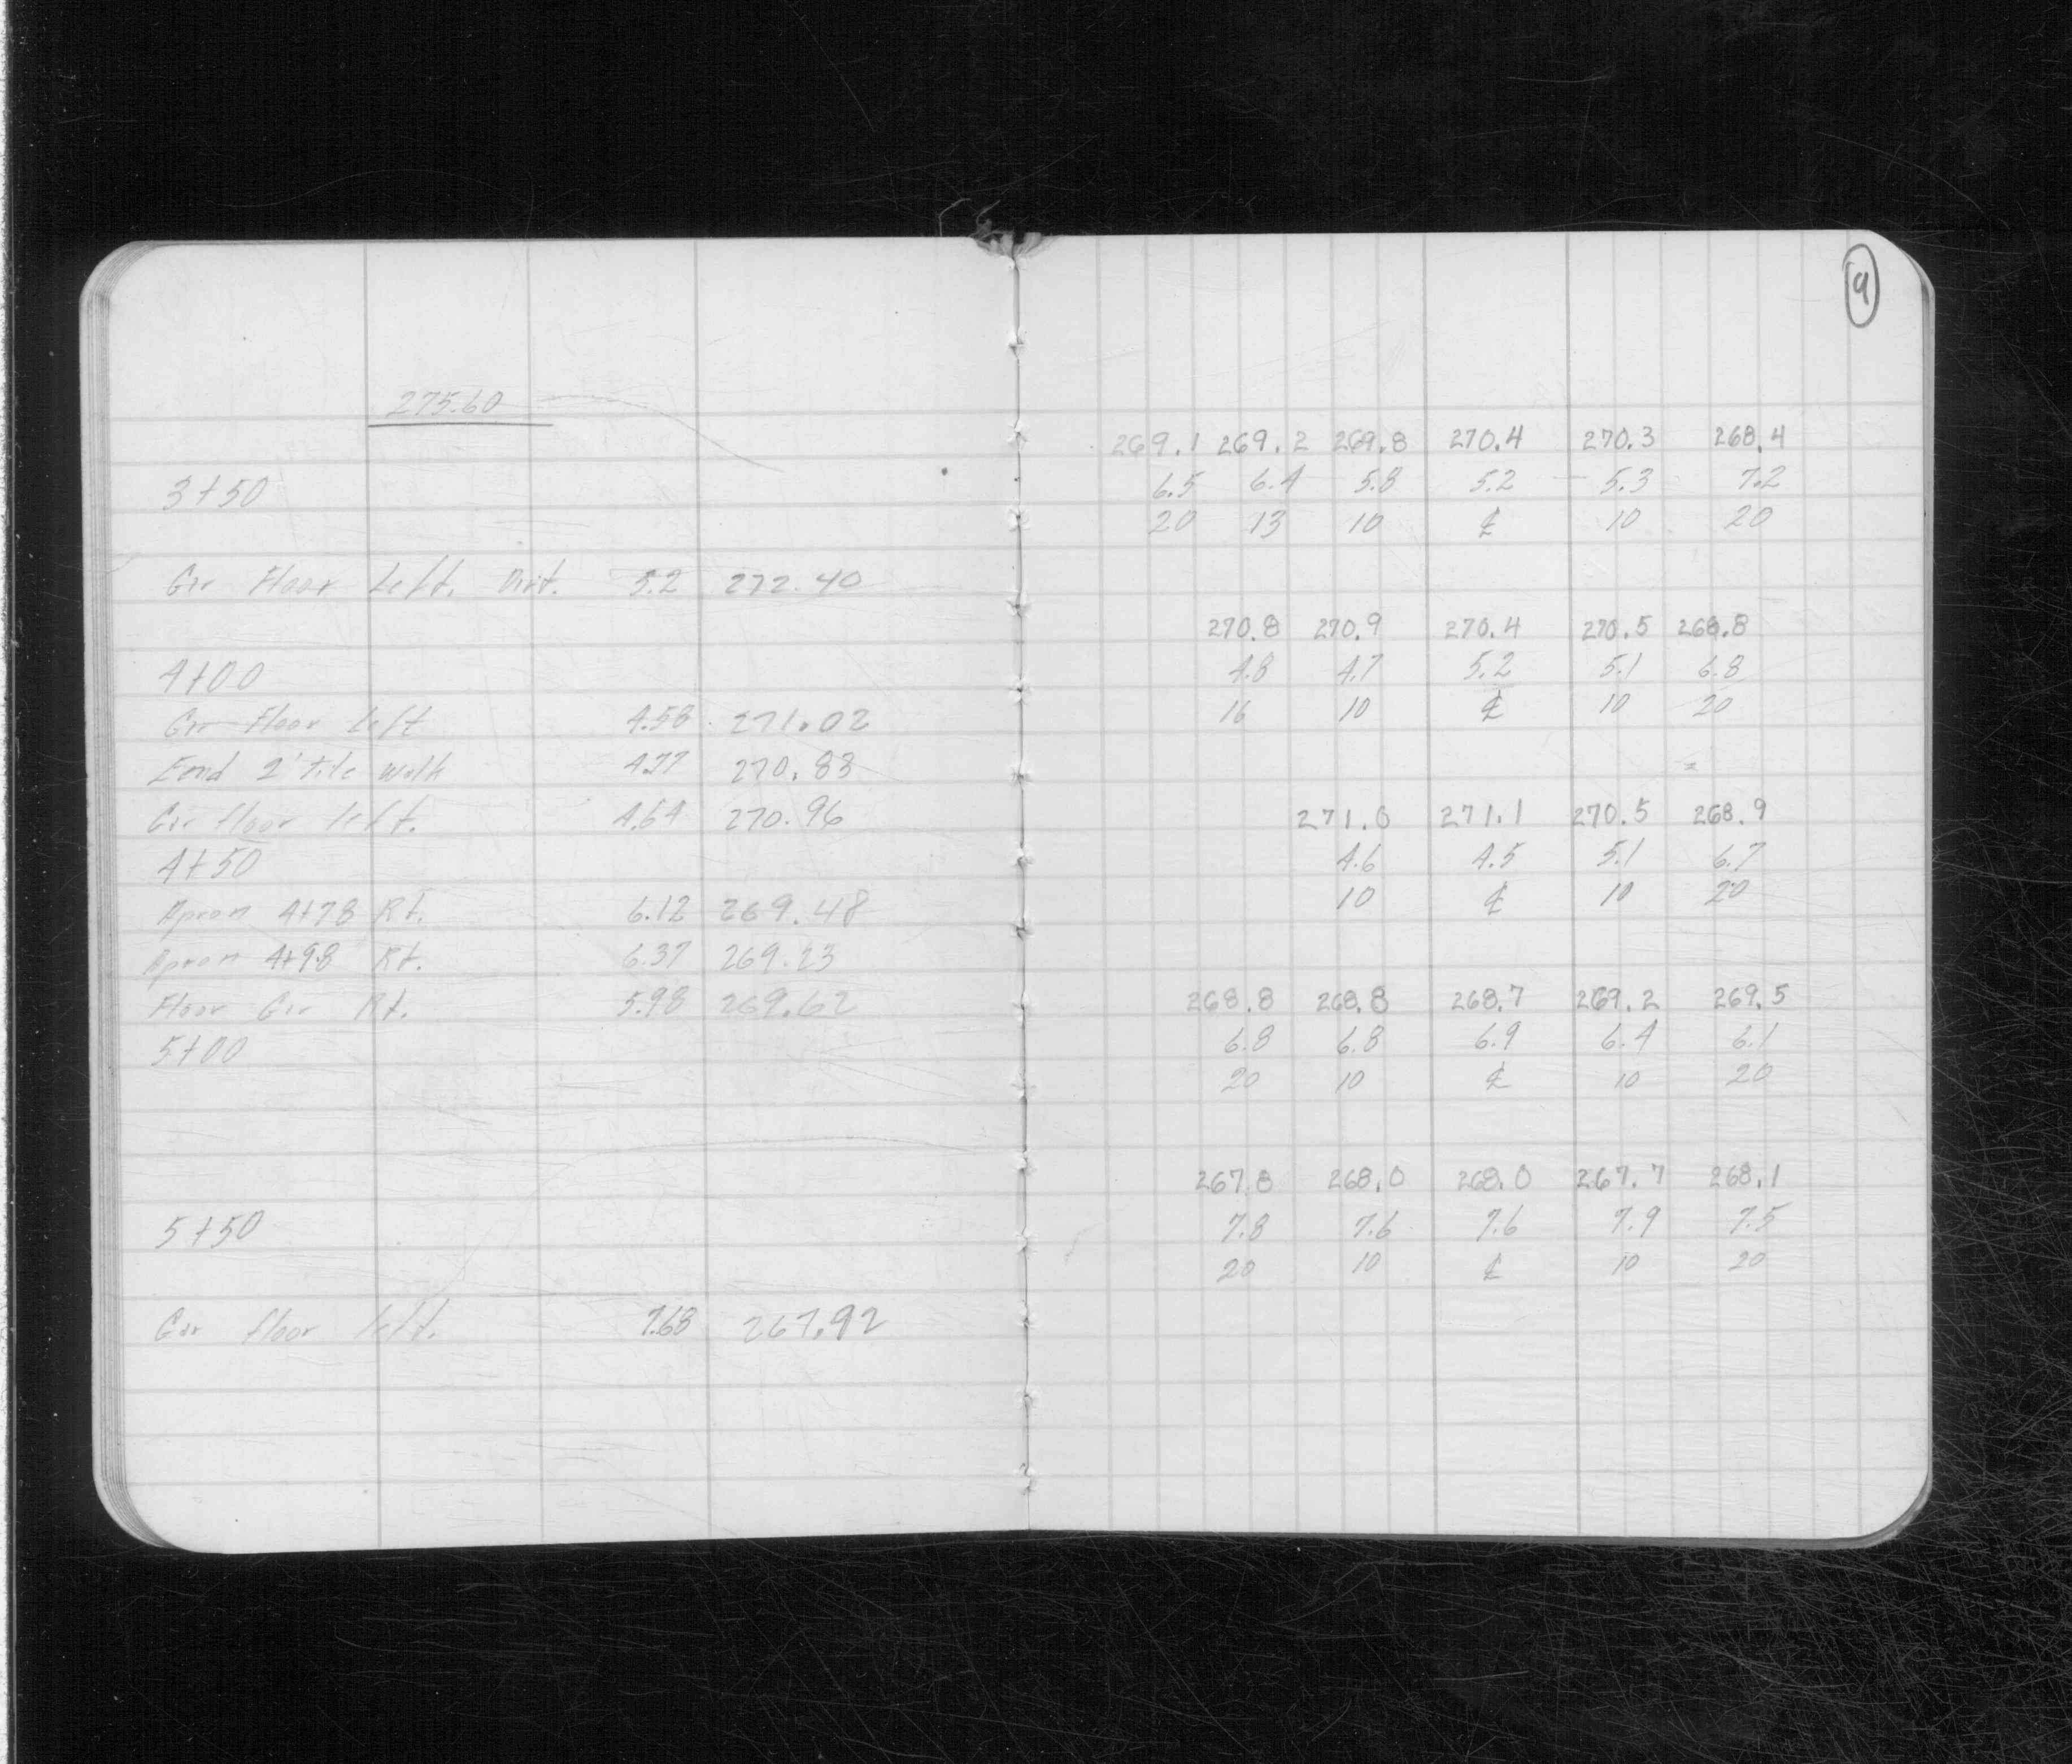 275.60
3+50
Gar Floor Left. Dirt. 5.2 272.40
4+00
Gar Floor Left 4.58 271.02
End 2' Tile Walk 4.77 270.83
Gar floor left. 4.64 270.96
4+50
Apron 4+78 Rt. 6.12 269.48
Apron 4+98 Rt. 6.37 269.23
Floor Gar Rt. 5.98 269.62
5+00
5+50
Gar floor left. 7.68 267.92
9
269.1 269.2 269.8 270.4 270.3 268.4
6.5 6.4 5.8 5.2 5.3 7.2
20 13 10 ℄ 10 20
270.8 270.9 270.4 270.5 268.8
4.8 4.7 5.2 5.1 6.8
16 10 ℄ 10 20
271.0 271.1 270.5 268.9
4.6 4.5 5.1 6.7
10 ℄ 10 20
268.8 268.8 268.7 269.2 269.5
6.8 6.8 6.9 6.4 6.1
20 10 ℄ 10 20
267.8 268.0 268.0 267.7 268.1
7.8 7.6 7.6 7.9 7.5
20 10 ℄ 10 20